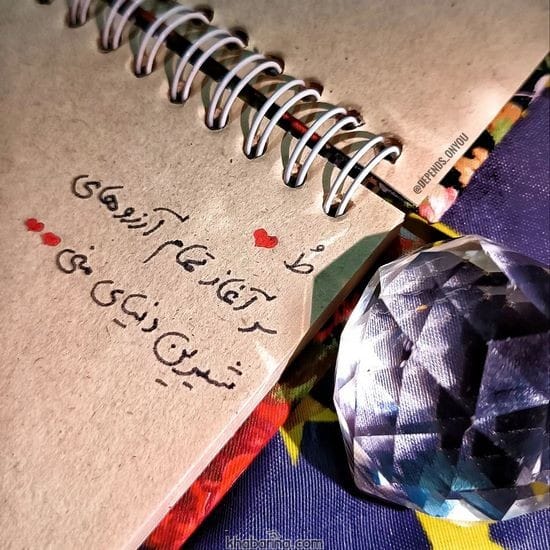 تُ
سرآغاز تمام آرزوهای
شیرین دنیای منی
@DEPENDS_ONYOU
khabariha.com